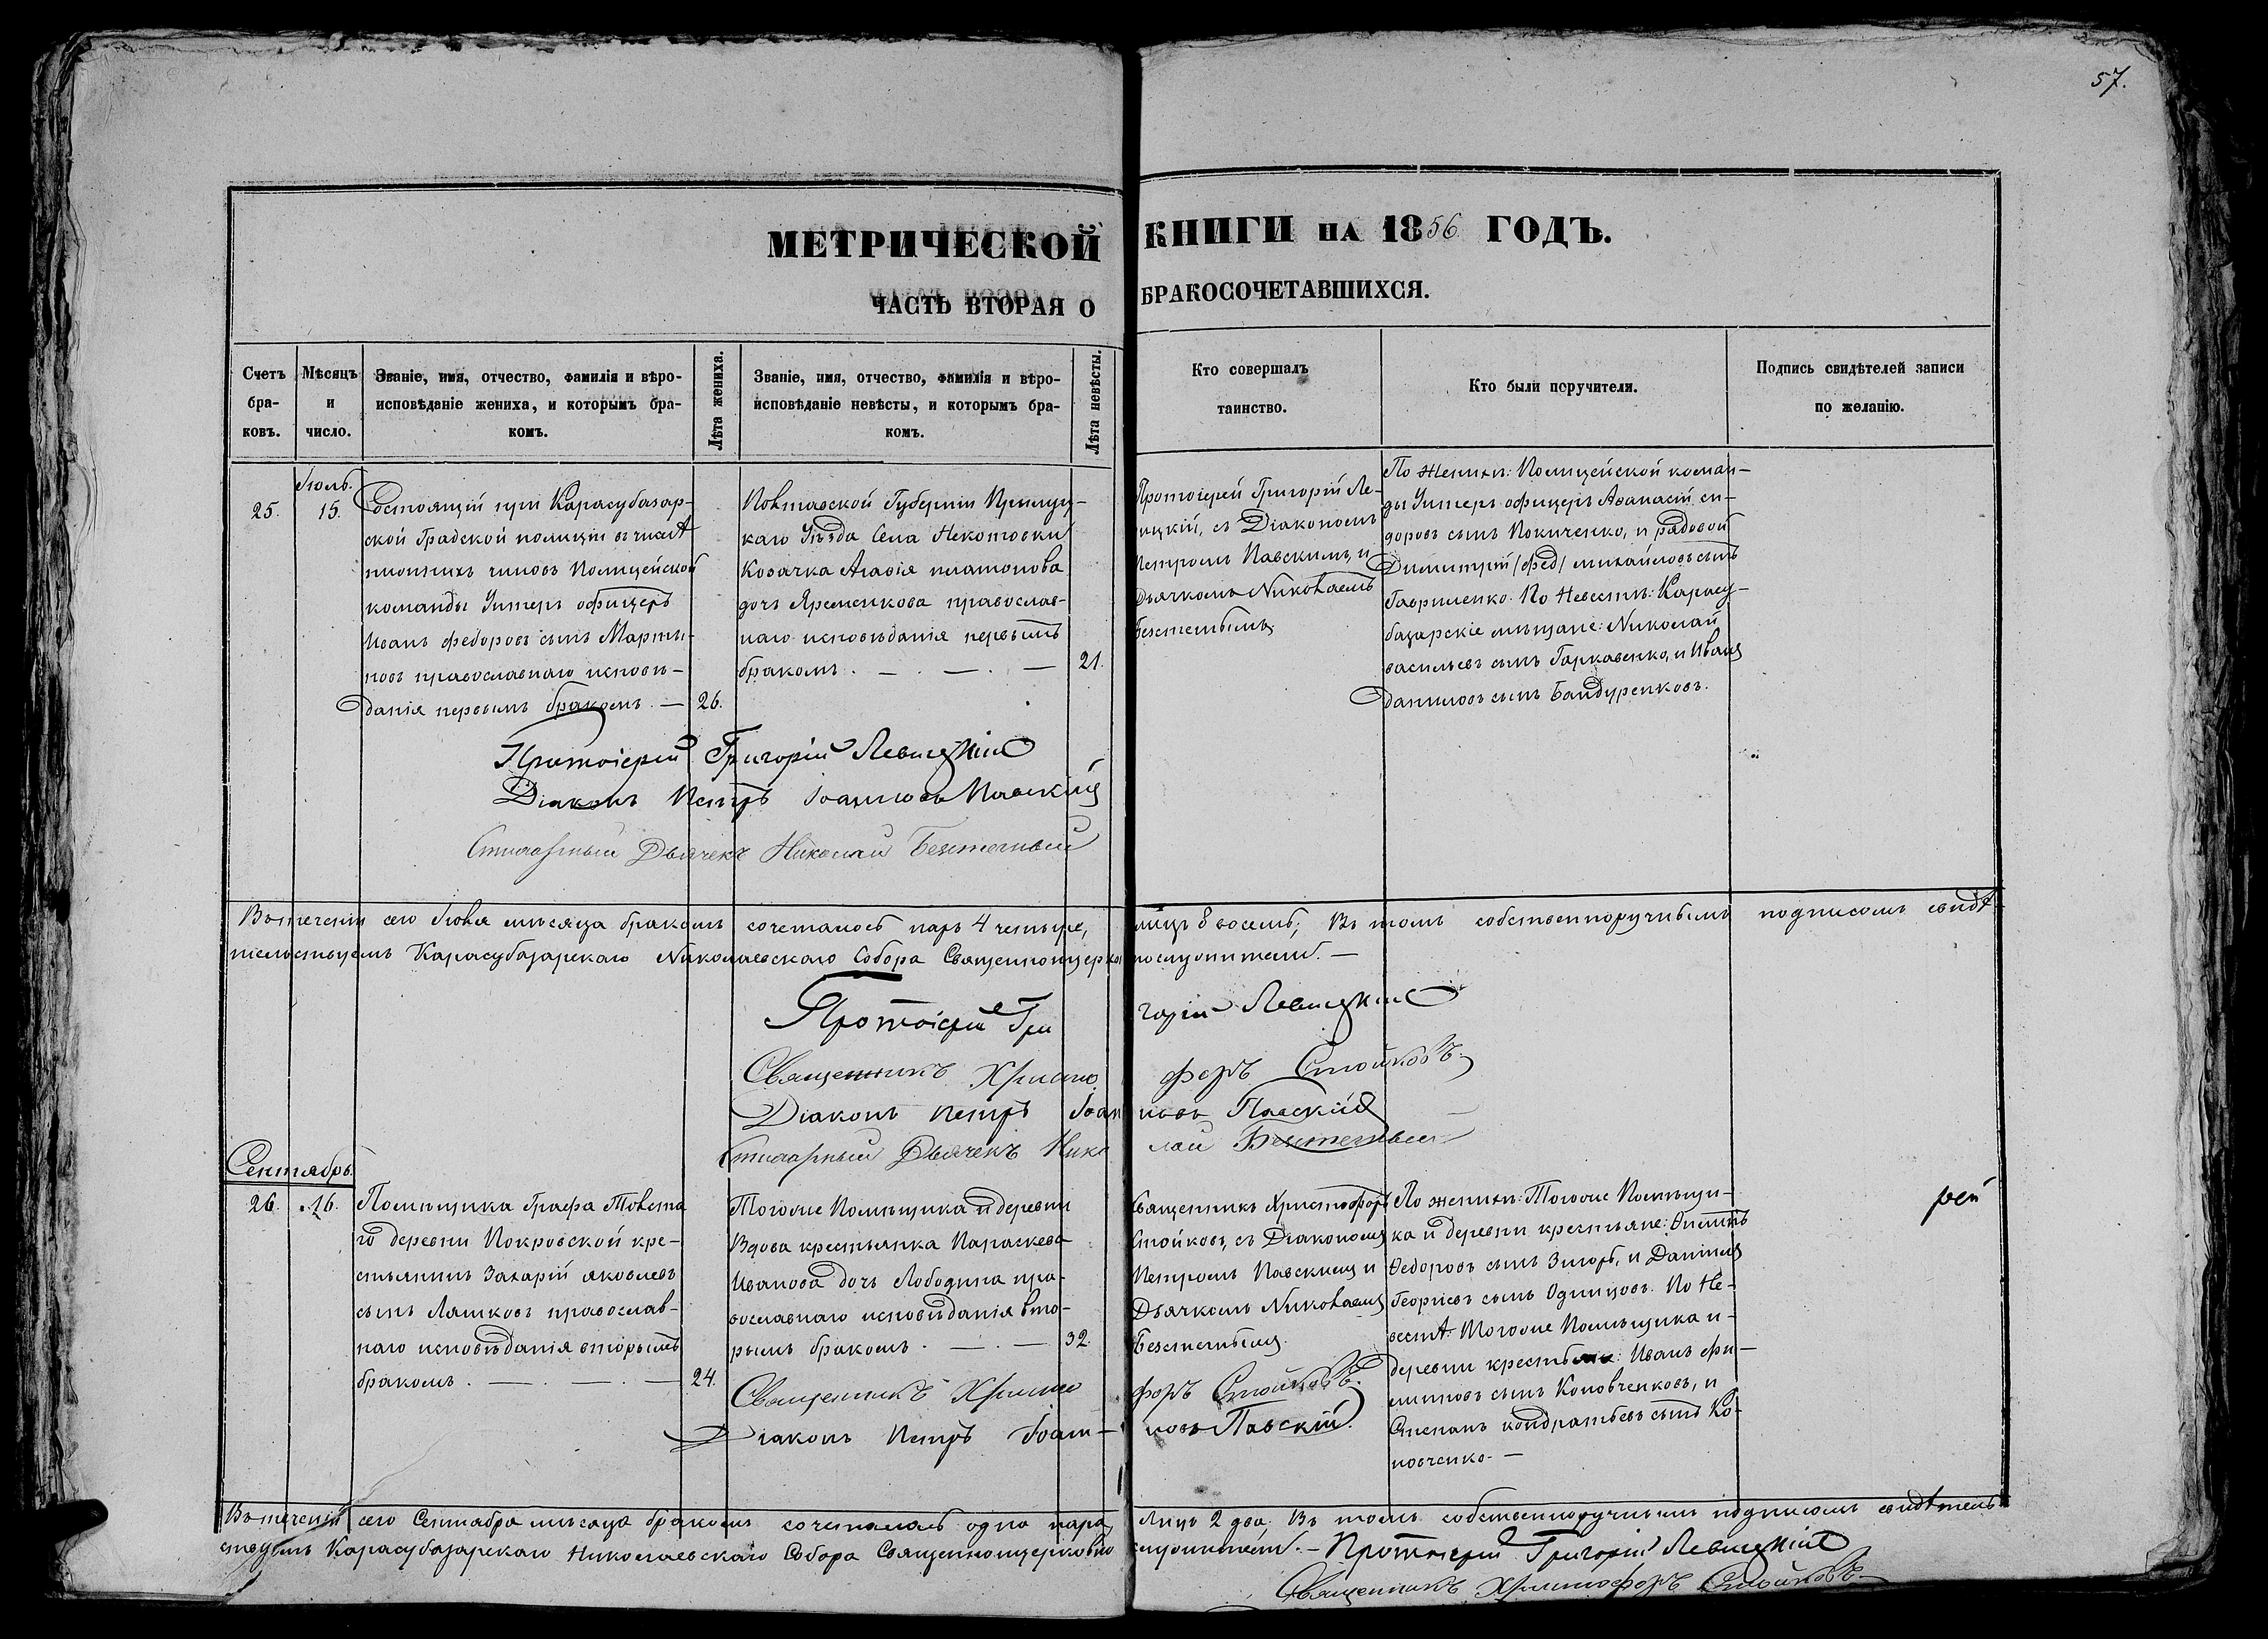 57.
МЕТРИЧЕСКОЙ КНИГИ НА 1856 ГОДЪ.
ЧАСТЬ ВТОРАЯ О БРАКОСОЧЕТАВШИХСЯ.
Счетъ бра-
ковъ.
Мѣсяцъ
и
число.
Званіе, имя, отчество, фамилія и вѣро-
исповѣданіе жениха, и которымъ бра-
комъ.
Лѣта жениха.
Званіе, имя, отчество, фамилія и вѣро-
исповѣданіе невѣсты, и которымъ бра-
комъ.
Лѣта невѣсты.
Кто совершалъ
таинство.
Кто были поручители.
Подпись свидѣтелей записи
по желанію.
25.
Іюль.
15.
Состоящій при Карасубазар-
ской Градской полиціи въ числѣ
нижнихъ чиновъ Полицейской
команды Унтеръ офицеръ
Иванъ Федоровъ сынъ Марты-
новъ православнаго исповѣ-
данія первымъ бракомъ. —
26.
Полтавской Губерніи Прилуц-
каго Уѣзда Села
Козачка Агафія платонова
дочь Яременкова православ-
наго исповѣданія первымъ
бракомъ. — . — . —
21.
Протоіерей Григорій Ле-
вицкій, съ Діакономъ
Петромъ Павскимъ, и
Дьячкомъ Николаемъ
По Женихѣ: Полицейской коман-
ды Унтеръ офицеръ Аѳанасій си-
доровъ сынъ и рядовой
Димитрій михайловъ сынъ
Гавриленко. По Невестѣ: Карасу-
базарскіе мѣщане: Николай
васильевъ сынъ Гаркавенко, и Иванъ
Даниловъ сынъ Бандуренковъ.
Протоіерей Григорій Левицкій
Діаконъ Петръ Іоанновъ Павскій
Стихарный Дьячекъ Николай
Въ теченіи сего Іюля мѣсяца бракомъ сочеталось паръ 4 четыре, лицъ 8 восемь; Въ томъ собственноручнымъ подписомъ свидѣ-
тельствуемъ Карасубазарскаго Николаевскаго Собора Священноцерковнослужители. —
Протоіерей Григорій Левицкій
Священникъ Христофоръ Стойковъ.
Діаконъ Петръ Іоанновъ Павскій
Стихарный Дьячекъ Николай
Сентябрь.
26.
16.
Помѣщика Графа Толста
го деревни Покровской кре-
стьянинъ Захарій яковлевъ
сынъ Ляшковъ православ-
наго исповѣданія вторымъ
бракомъ. — . — . —
24.
Тогоже Помѣщика и деревни
Вдова крестьянка Параскева
Иванова дочь Лободина пра-
вославнаго исповѣданія вто-
рымъ бракомъ. — . —
32.
Священникъ Христофоръ
Стойковъ, съ Діакономъ
Петромъ Павскимъ и
Дьячкомъ Николаемъ
По женихѣ: Тогоже Помѣщи-
ка и деревни крестьяне:
Ѳедоровъ сынъ и Даніилъ
Георгіевъ сынъ Одинцовъ. По Не-
вестѣ: Тогоже Помѣщика и
деревни крестьяне: Иванъ фи-
липовъ сынъ Коновченковъ, и
Степанъ кондратьевъ сынъ Ко-
новченко. —
Священникъ Христофоръ Стойковъ.
Діаконъ Петръ Іоанновъ Павскій.
Въ теченіи сего Сентября мѣсяца бракомъ сочеталась одна пара, Лицъ 2 два. Въ томъ собственноручнымъ подписомъ свидѣтель-
ствуемъ Карасубазарскаго Николаевскаго Собора Священноцерковнослужители. — Протоіерей Григорій Левицкій
Священникъ Христофоръ Стойковъ.